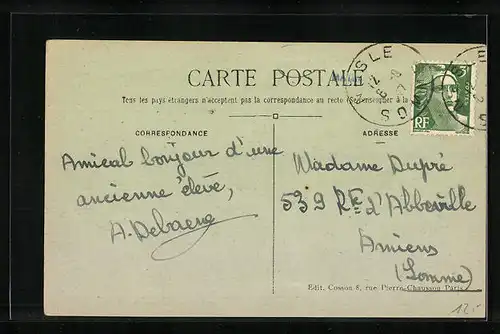 CARTE POSTALE
Tous les pays étrangers n'acceptent pas la correspondance au recto (Se renseigner à la
CORRESPONDANCE
ADRESSE
Amical bonjour d'une
ancienne élève,
A. Debaene
Madame Dupré
539 Rte d'Abbeville
Amiens
(Somme)
RF
Edit. Cosson 8, rue Pierre-Chausson Paris
12.-